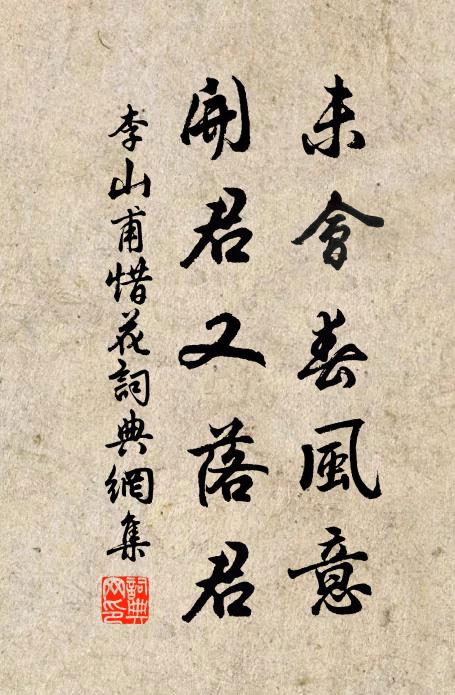 未會春風意
開君又落君
李山甫惜花詞典網集
詞典
網印